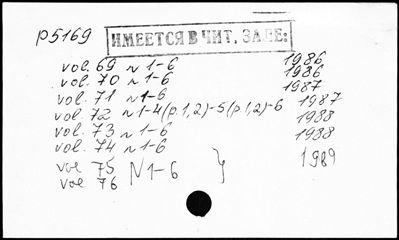 p5169
ИМЕЕТСЯ В ЧИТ. ЗАЛЕ:
vol. 69 N 1-6 1986
vol. 70 N 1-6 1986
vol. 71 N 1-6 1987
vol. 72 N 1-4(p.1,2)-5(p1,2)-6 1987
vol. 73 N 1-6 1988
vol. 74 N 1-6 1988
vol 75 N 1-6 } 1989
vol 76